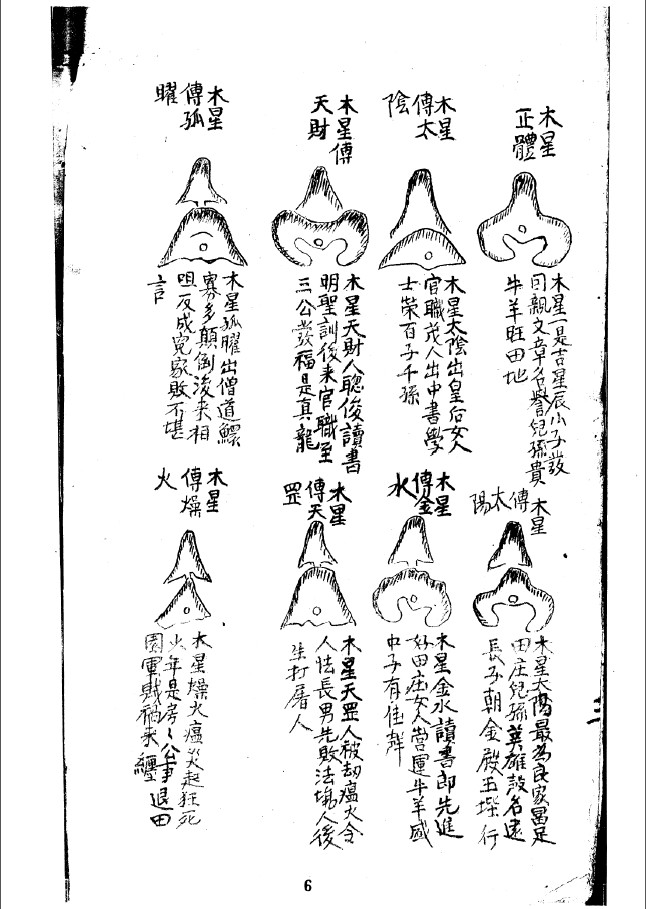 木星
正體
木星一是吉星辰小子發
司親文章名譽兒孫貴
牛羊旺田地
木星
傳太
陰
木星太陰出皇后女人
官職茂人出中書學
士榮百子千孫
木星傳
天財
木星天財人聰俊讀書
明聖訓後来官職至
三公發福是真龍
木星
傳孤
曜
木星孤曜出僧道鰥
寡多顛倒後来相
咀反成冤家敗不堪
言
木星
傳太
陽
木星太陽最為良家冨足
田庄兒孫英雄設名逮
長子朝金殿玉堦行
木星
傳金
水
木星金水讀書郎先進
好田庄女人當運牛羊盛
中子有佳群
木星
傳天
罡
木星天罡人被刼瘟火令
人怯長男先敗法塊人後
生打屠人
木星
傳燥
火
木星燥火瘟災起狂死
少年是房〻公事退田
園軍賊禍来纏
三
6